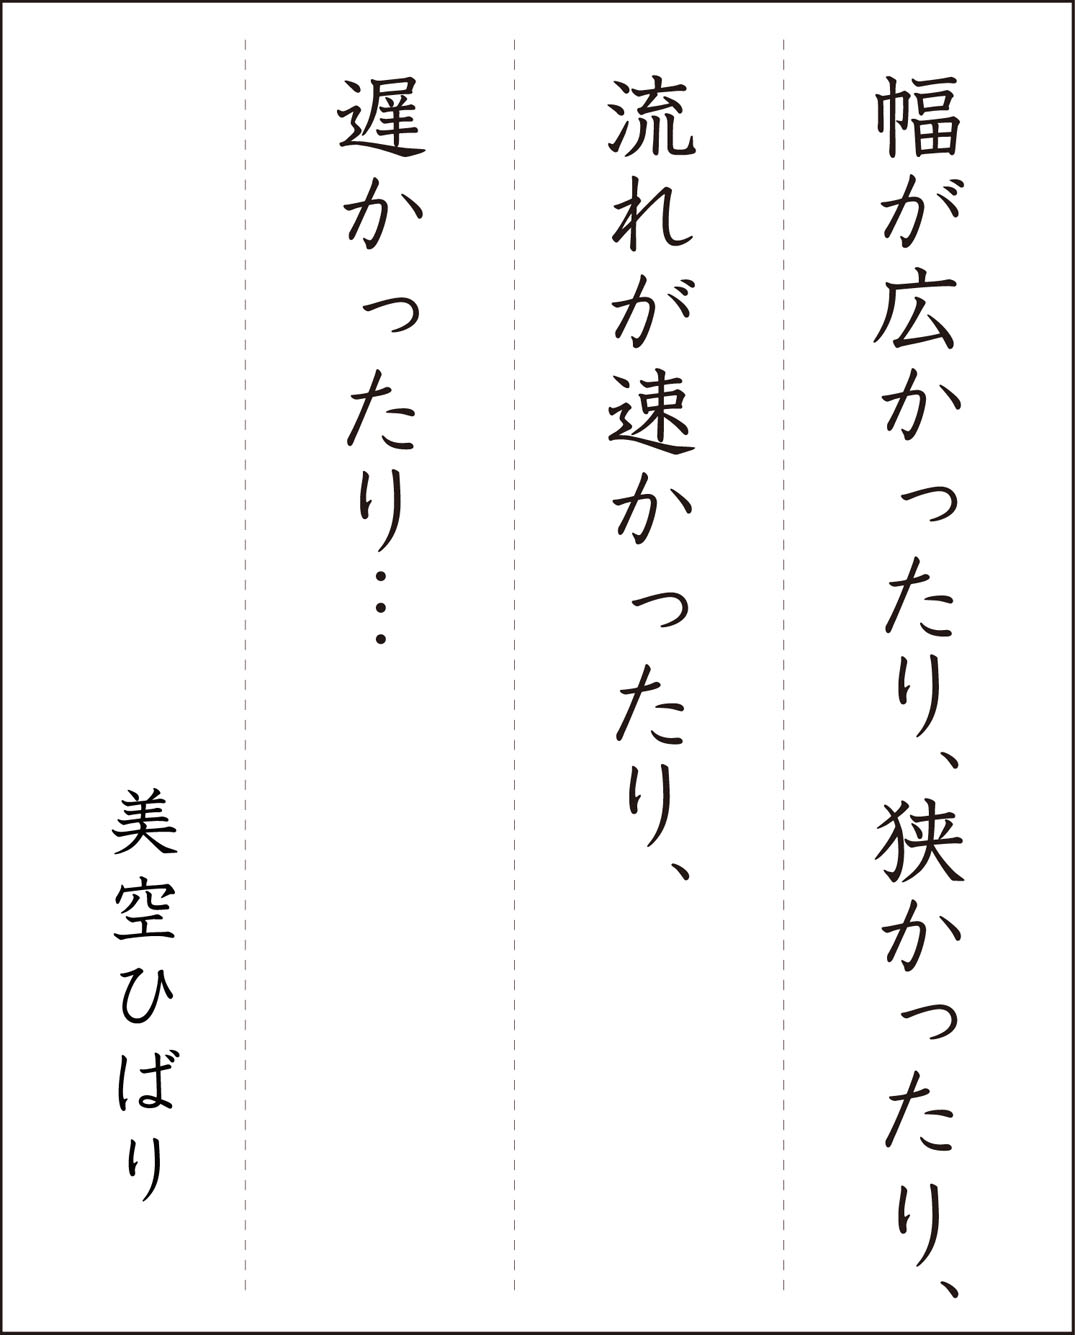 幅が広かったり、狭かったり、
流れが速かったり、
遅かったり…
美空ひばり